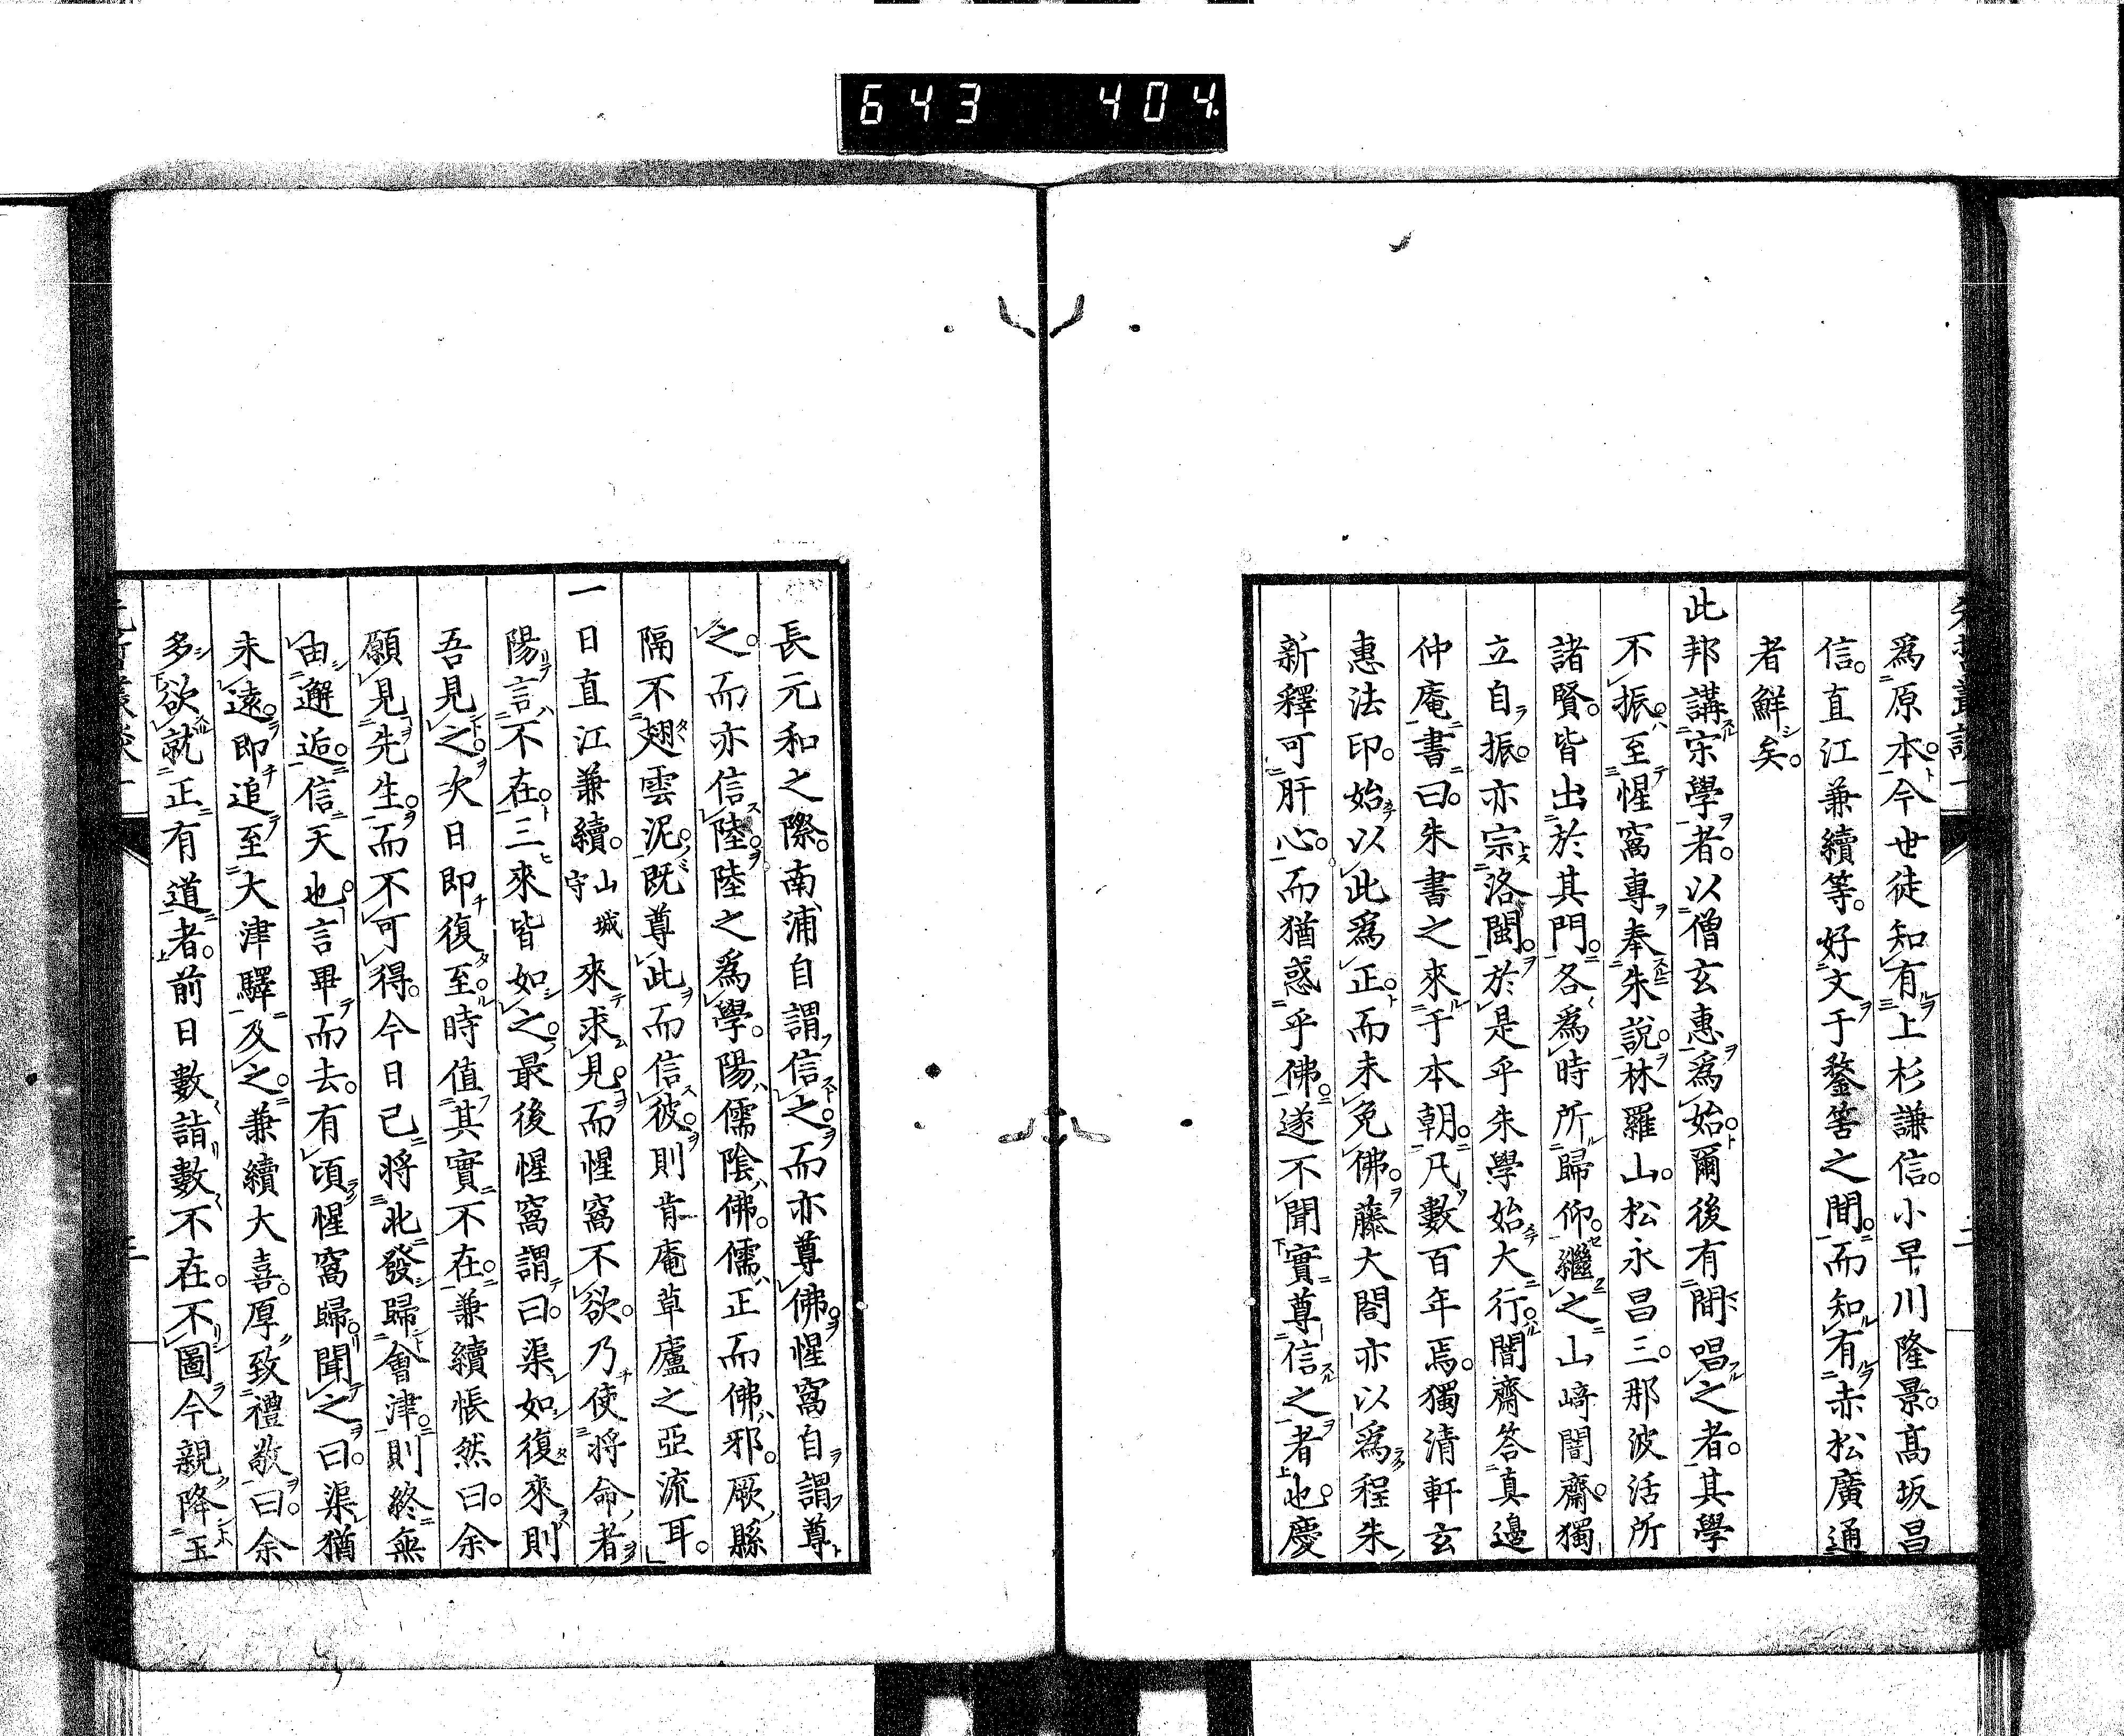 643 404
爲原本今世徒知有上杉謙信。小早川隆景。高坂昌
信。直江兼續等。好文于鍪箁之間。而知有赤松廣通
者鮮矣。
此邦講宋學者。以僧玄惠爲始。爾後有間唱之者。其學
不振。至惺窩專奉朱說。林羅山。松永昌三。那波活所
諸賢。皆出於其門。各爲時所歸仰。繼之山﨑闇齋。獨
立自振。亦宗洛閩。於是乎朱學始大行。闇齋答真邊
仲庵書曰。朱書之來于本朝。凡數百年焉。獨清軒玄
惠法印。始以此爲正。而未免佛。藤大閤亦以爲程朱
新釋可肝心。而猶惑乎佛。遂不聞實尊信之者也。慶
長元和之際。南浦自謂信之。而亦尊佛。惺窩自謂尊
之。而亦信陸。陸之爲學。陽儒陰佛。儒正而佛邪。厥縣
隔不翅雲泥。既尊此而信彼。則肯庵草廬之亞流耳。
一日直江兼續。山城守來求見。而惺窩不欲。乃使將命者
陽言不在。三來皆如之。最後惺窩謂曰。渠如復來。則
吾見之。次日即復至。時值其實不在。兼續悵然曰。余
願見先生。而不可得。今日已將北發歸會津。則終無
由邂逅。信天也。言畢而去。有頃惺窩歸。聞之曰。渠猶
未遠。即追至大津驛及之。兼續大喜。厚致禮敬曰。余
多欲就正有道者。前日數詣數不在。不圖今親降玉